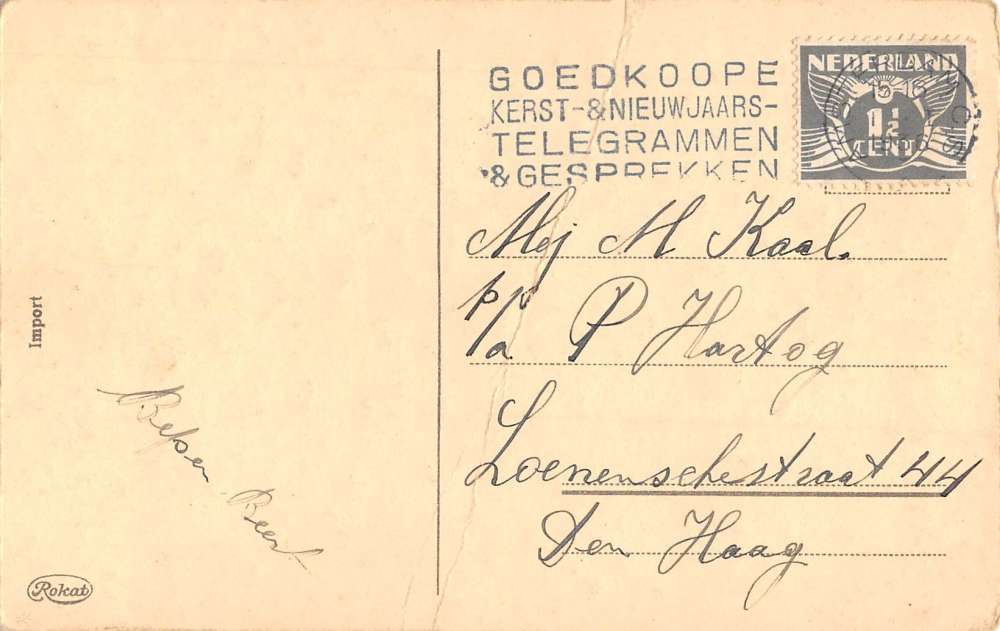 GOEDKOOPE
KERST-&NIEUWJAARS-
TELEGRAMMEN
&GESPREKKEN
NEDERLAND
1½
CENT
15-16
Mej M Kaal.
p/a P Hartog
Loenenschestraat 44
Den Haag
Import
Bep en Beert
Rokat